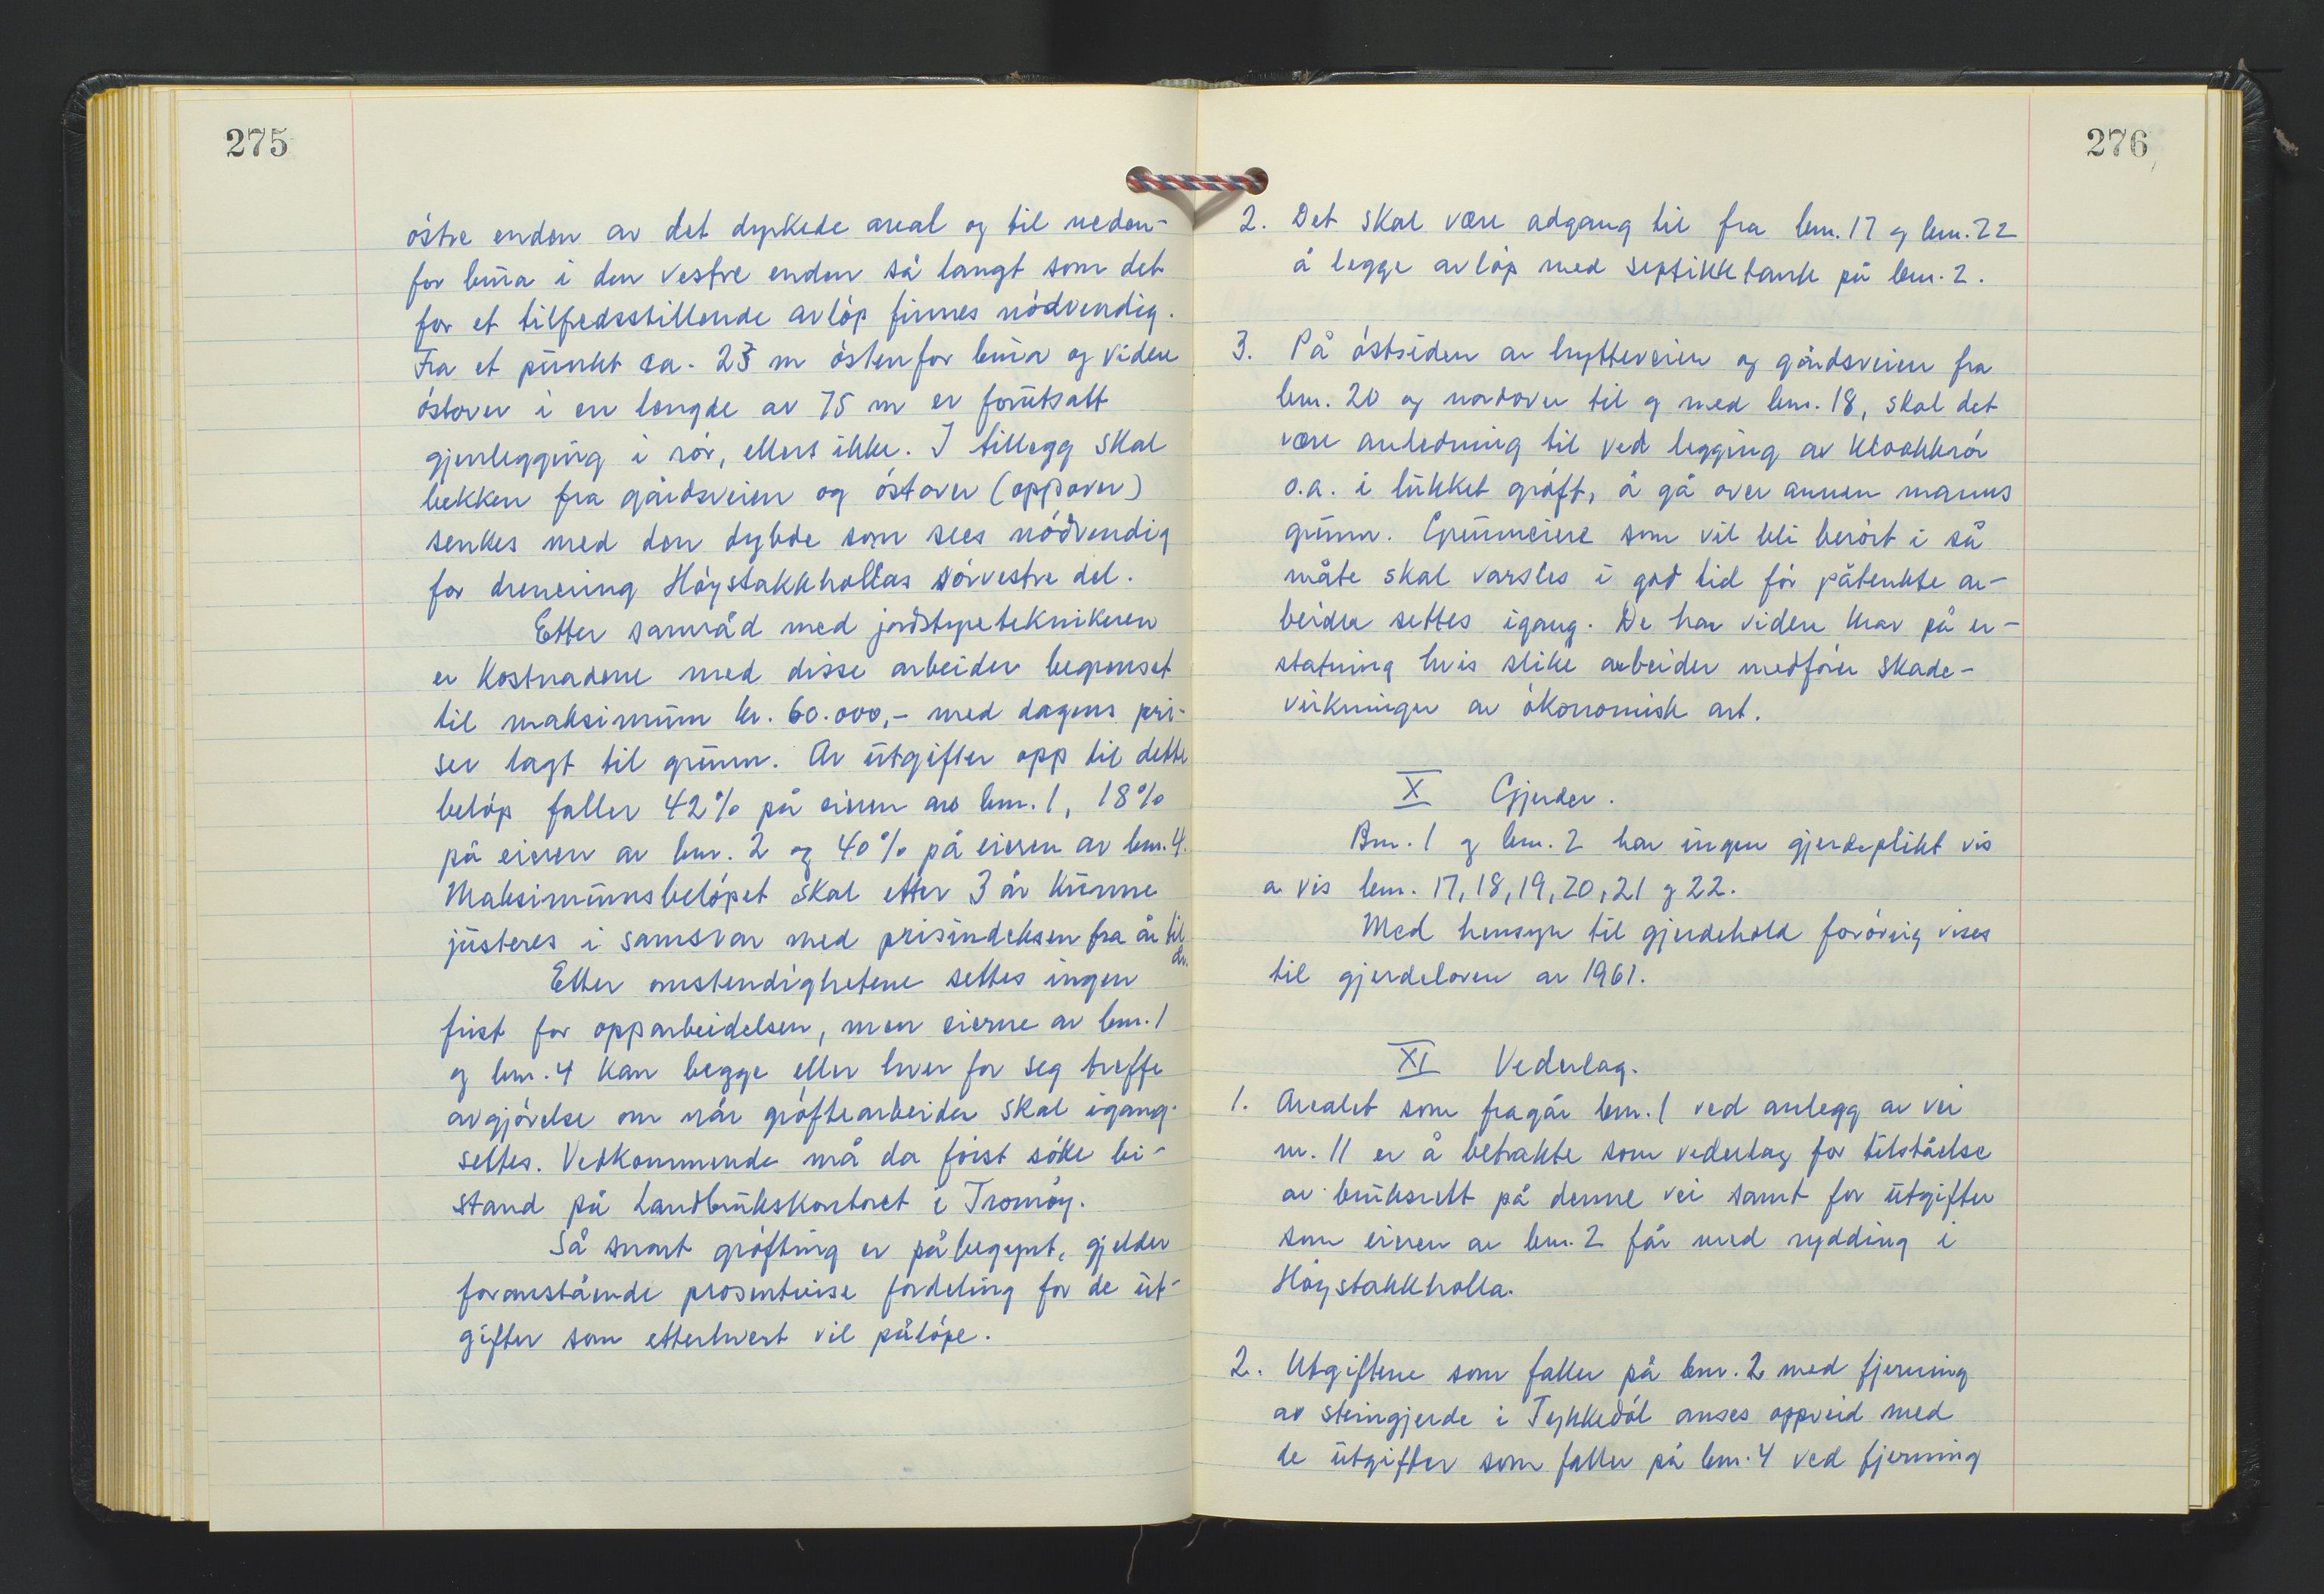 275
östre enden av det dyrkede areal og til neden-
for brua i den vestre enden så langt som det
for et tilfredsstillende avlöp finnes nödvendig.
Fra et punkt ca. 23 m östenfor brua og videre
östover i en lengde av 75 m er forutsatt
gjenlegging i rör, ellers ikke. I tillegg skal
bekken fra gårdsveien og östover (oppover)
senkes med den dybde som sees nödvendig
for drenering Höystakkhollas sörvestre del.
Etter samråd med jordstyreteknikeren
er kostnadene med disse arbeider begrenset
til maksimum kr. 60.000,- med dagens pri-
ser lagt til grunn. Av utgifter opp til dette
belöp faller 42% på eieren av bnr. 1, 18%
på eieren av bnr. 2 og 40% på eieren av bnr. 4.
Maksimumsbelöpet skal etter 3 år kunne
justeres i samsvar med prisindeksen fra år til
år.
Etter omstendighetene settes ingen
frist for opparbeidelsen, men eierne av bnr. 1
og bnr. 4 kan begge eller hver for seg treffe
avgjörelse om når gröftearbeider skal igang-
settes. Vedkommende må da först söke bi-
stand på Landbrukskontoret i Tromöy.
Så snart gröfting er påbegynt, gjelder
foranstående prosentvise fordeling for de ut-
gifter som etterhvert vil pålöpe.
276
2. Det skal være adgang til fra bnr. 17 og bnr. 22
å legge avlöp med septikktank på bnr. 2.
3. På östsiden av hytteveien og gårdsveien fra
bnr. 20 og nordover til og med bnr. 18, skal det
være anledning til ved legging av kloakkrör
o.a. i lukket gröft, å gå over annen manns
grunn. Grunneiere som vil bli berört i så
måte skal varsles i god tid för påtenkte ar-
beider settes igang. De har videre krav på er-
statning hvis slike arbeider medförer skade-
virkninger av ökonomisk art.
X Gjerder.
Bnr. 1 og bnr. 2 har ingen gjerdeplikt vis
a vis bnr. 17, 18, 19, 20, 21 og 22.
Med hensyn til gjerdehold forövrig vises
til gjerdeloven av 1961.
XI Vederlag.
1. Arealet som fragår bnr. 1 ved anlegg av vei
nr. 11 er å betrakte som vederlag for tilståelse
av bruksrett på denne vei samt for utgifter
som eieren av bnr. 2 får med rydding i
Höystakkholla.
2. Utgiftene som faller på bnr. 2 med fjerning
av steingjerde i Tykkedöl anses oppveid med
de utgifter som faller på bnr. 4 ved fjerning